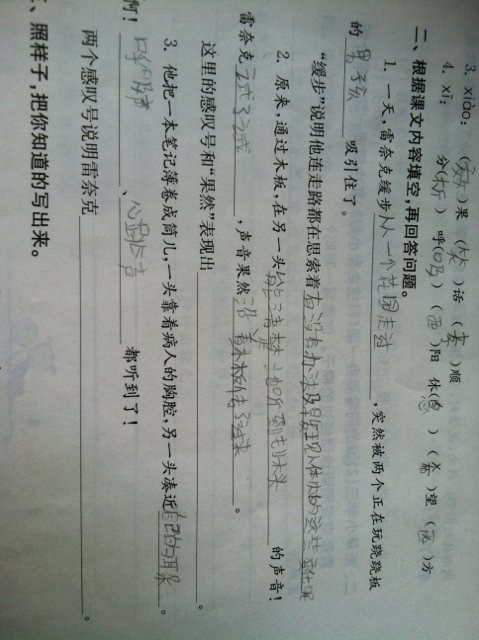 3. xiào：（效）果（笑）话（孝）顺
4. xī：分（析）呼（吸）（西）阳 休（息）（希）望（西）方
二、根据课文内容填空，再回答问题。
1. 一天，雷奈克缓步从一个花园走过，突然被两个正在玩跷跷板
的男孩吸引住了。
“缓步”说明他连走路都在思索着有没有办法及早发现人体内的这些
2. 原来，通过木板，在另一头的声音！
雷奈克试了试，声音果然沿着木板传了过来。
这里的感叹号和“果然”表现出。
3. 他把一本笔记簿卷成筒儿，一头靠着病人的胸腔，另一头凑近自己的耳朵。
啊！呼吸声、心跳声都听到了！
两个感叹号说明雷奈克。
三、照样子，把你知道的写出来。